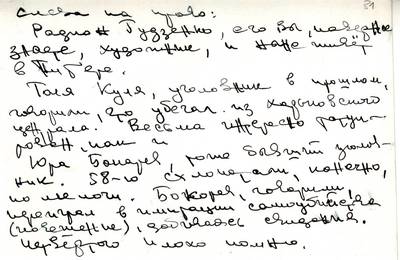 слева на право:
Радион Гудзенко, его Вы, наверное
знаете, художник, и ныне живёт
в Питере.
Толя Куля, уголовник в прошлом,
говорили, что убегал из харьковского
централа. Весьма интересно татуи-
рован, как и
Юра Бокарев, тоже бывший уголов-
ник. 58-ю схлопотали, конечно,
по мелочи. Бокарев, говорили,
переиграл в имитации самоубийства
(повешение), добиваясь свидания.
Четвёртого плохо помню.